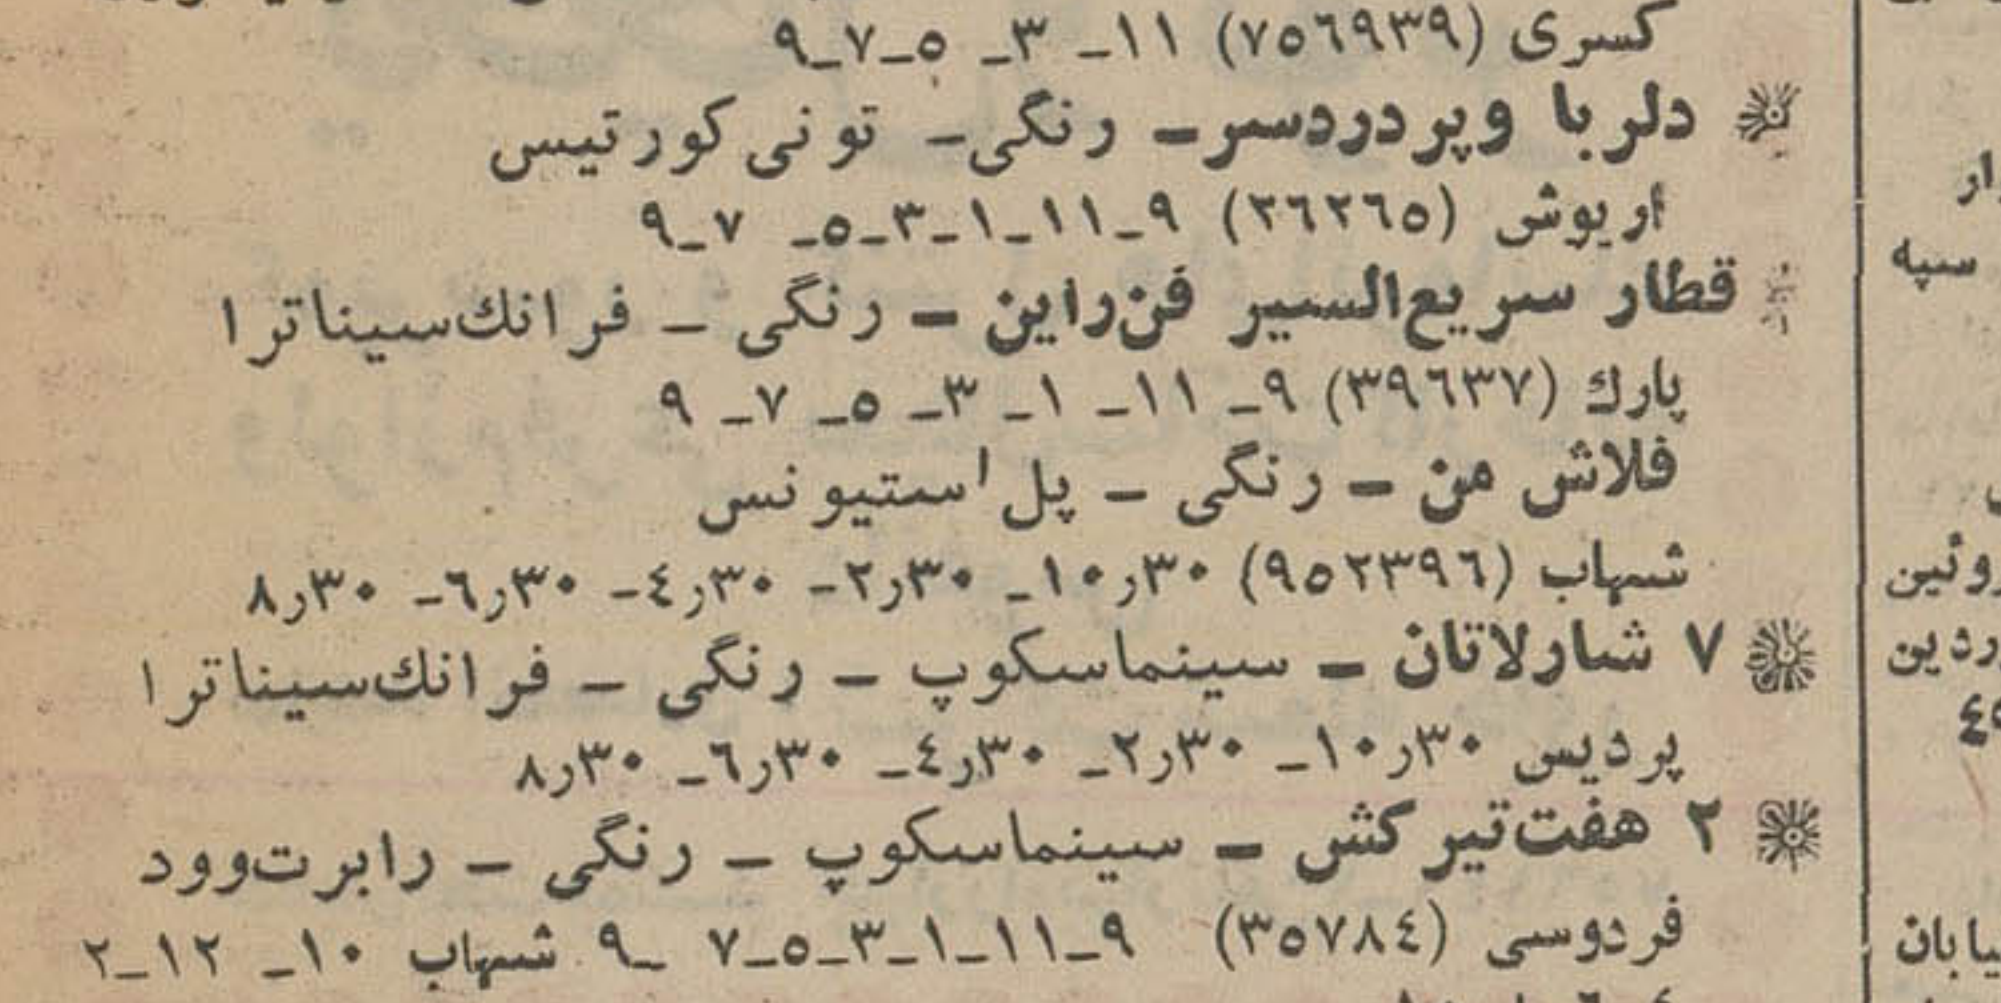 کسری (۷۵٦۹۳۹) ۱۱ـ ۳ـ ۵ـ۷ـ۹
دلربا وپردردسر ـ رنگی ـ تونی کورتیس
اریوش (۲٦۲٦۵) ۹ـ۱۱ـ۱ـ۳ـ۵ـ ۷ـ۹
قطار سریع‌السیر فن‌راین ـ رنگی ـ فرانك‌سیناترا
پارك (۳۹٦۳۷) ۹ـ ۱۱ـ ۱ـ ۳ـ ۵ـ ۷ـ ۹
فلاش من ـ رنگی ـ پل استیونس
شهاب (۹۵۲۳۹٦) ۱۰٫۳۰ـ ۲٫۳۰ـ ٤٫۳۰ـ ٦٫۳۰ـ ۸٫۳۰
۷ شارلاتان ـ سینماسکوپ ـ رنگی ـ فرانك‌سیناترا
پردیس ۱۰٫۳۰ـ ۲٫۳۰ـ ٤٫۳۰ـ ٦٫۳۰ـ ۸٫۳۰
۲ هفت‌تیرکش ـ سینماسکوپ ـ رنگی ـ رابرت‌وود
فردوسی (۳۵۷۸٤) ۹ـ۱۱ـ۱ـ۳ـ۵ـ۷ ـ۹ شهاب ۱۰ـ ۱۲ـ۲
سپه